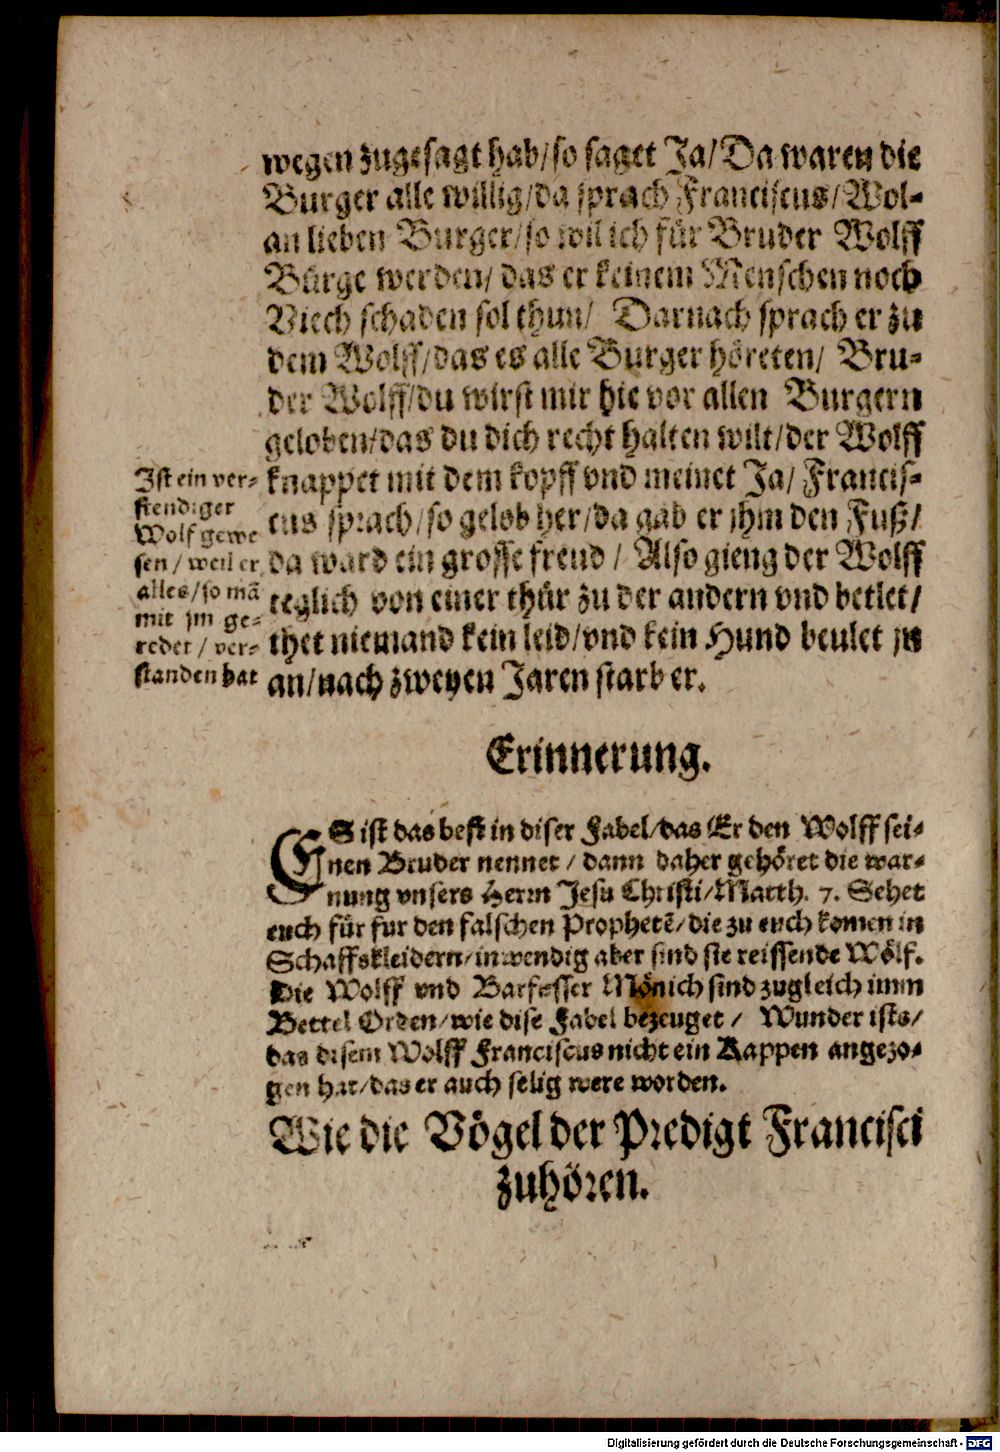 wegen zugesagt hab/so saget Ja/Da waren die
Burger alle willig/da sprach Franciscus/Wol-
an lieben Burger/so wil ich für Bruder Wolff
Bürge werden/das er keinem Menschen noch
Viech schaden sol thun/ Darnach sprach er zu
dem Wolff/das es alle Burger höreten/ Bru-
der Wolff/du wirst mir hie vor allen Burgern
geloben/das du dich recht halten wilt/der Wolff
knappet mit dem kopff vnd meinet Ja/ Francis-
cus sprach/so gelob her/da gab er ihm den Fuß/
da ward ein grosse freud / Also gieng der Wolff
teglich von einer thür zu der andern vnd betlet/
thet niemand kein leid/vnd kein Hund beulet jn
an/nach zweyen Jaren starb er.
Ist ein ver-
stendiger
Wolf gewe
sen / weil er
alles/so mã
mit jm ge-
redet / ver-
standen hat
Erinnerung.
ES ist das best in diser Fabel/das Er den Wolff sei-
nen Bruder nennet / dann daher gehöret die war-
nung vnsers Herrn Jesu Christi/Matth. 7. Sehet
euch für fur den falschen Prophetẽ/die zu euch komen in
Schaffskleidern/inwendig aber sind sie reissende Wölf.
Die Wolff vnd Barfusser Mönich sind zugleich imm
Bettel Orden/wie dise Fabel bezeuget / Wunder ists/
das disem Wolff Franciscus nicht ein Kappen angezo-
gen hat/das er auch selig were worden.
Wie die Vögel der Predigt Francisci
zuhören.
Digitalisierung gefördert durch die Deutsche Forschungsgemeinschaft - DFG